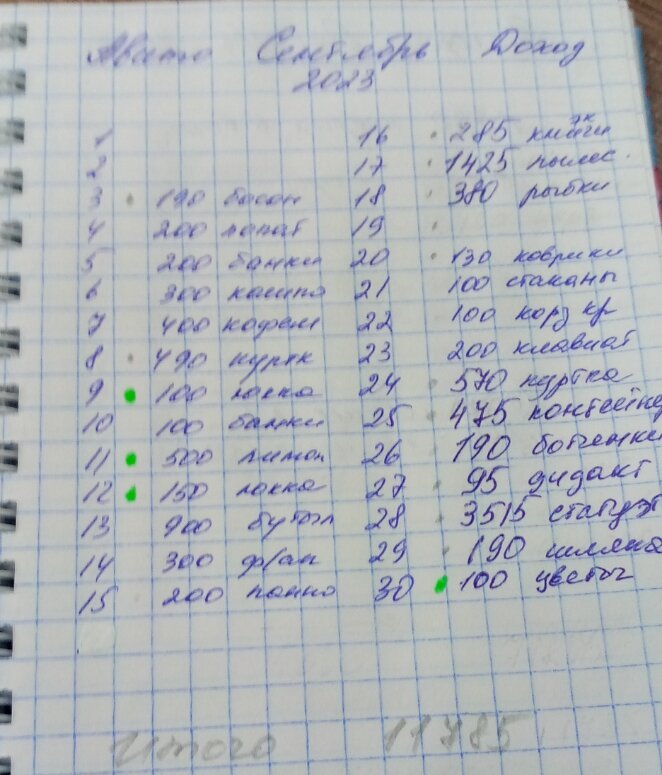 Авито Сентябрь Доход
2023
1 16 285 книги эк
2 17 1425 пылес.
3 190 18 380 рыбки
4 200 19
5 200 банки 20 130 коврики
6 300 кашпо 21 100 стаканы
7 400 кофем 22 100 корз кр
8 490 куртк 23 200 клавиат
9 100 24 570 куртка
10 100 банки 25 475 контейнер
11 500 лимон 26 190 ботинки
12 150 27 95 дидакт
13 900 бутыл 28 3515 статуэт
14 300 ф/ап 29 190 шляпа
15 200 панно 30 100 цветы
Итого 11785